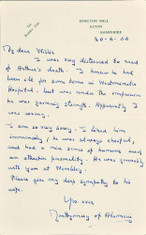 ISINGTON MILL
ALTON
HAMPSHIRE
My dear Willis
I was very distressed to read
of Arthur's death. I knew he had
been ill for some time in Westminster
Hospital, but was under the impression
he was gaining strength. Apparently I
was wrong.
I am so very sorry. I liked him
immensely; he was always cheerful,
and had a nice sense of humour and
an attractive personality. He was
with you at Wembley.
Please give my deep sympathy to his
wife.
Yrs ever
Montgomery of Alamein